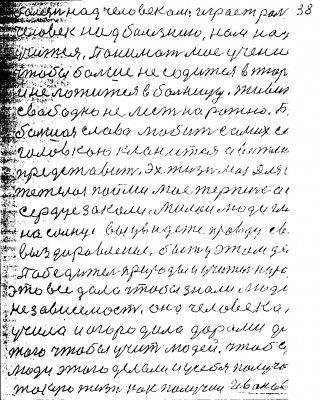 болезн над человеком играет рол 38
человек над болезнию, нам над
учится, понимат мое учение
чтобы больше не садится в тюрм
и не ложится в больницу. живи
свободно не лест на рожно.
большая слава любит самих се
головкою кланится и
представит. Эх жизн моя для
тежелоя пойми мое терпение
сердце закали. Милаи люди гл
на солнце вы увидете правду св
выздаравление, быть у этом де
победител природы и учител наро
это все дало чтобы знали люди
независимость, она человека,
учила и огородила дарами
того чтобы учит людей. чтобы
люди этого делали и у себя получа
такую жизн как получил Иванов